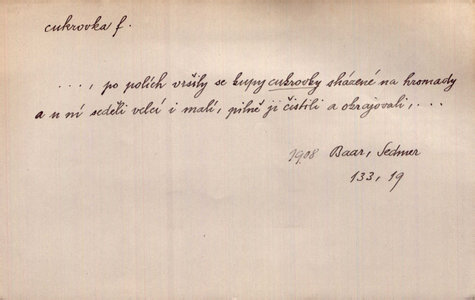 cukrovka f.
..., po polích vršily se kupy cukrovky sházené na hromady
a u ní seděli velcí i malí, pilně ji čistili a okrajovali, ...
1908 Baar, Sedmer
133, 19